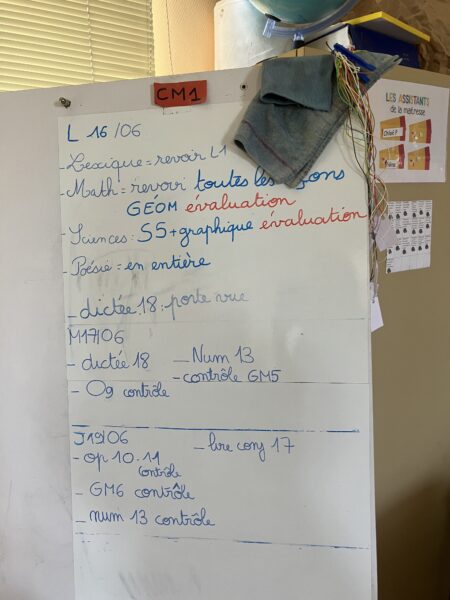 CM1
LES ASSISTANTS
de la maîtresse
Chloé P
L 16/06
- Lexique = revoir L1
- Math = revoir toutes les leçons
GÉOM évaluation
- Sciences: S5 + graphique évaluation
- Poésie = en entière
- dictée 18: porte vue
M17/06
- dictée 18 - Num 13
- contrôle GM5
- Og contrôle
J19/06
- op 10.11 - lire conj 17
contrôle
- GM6 contrôle
- num 13 contrôle